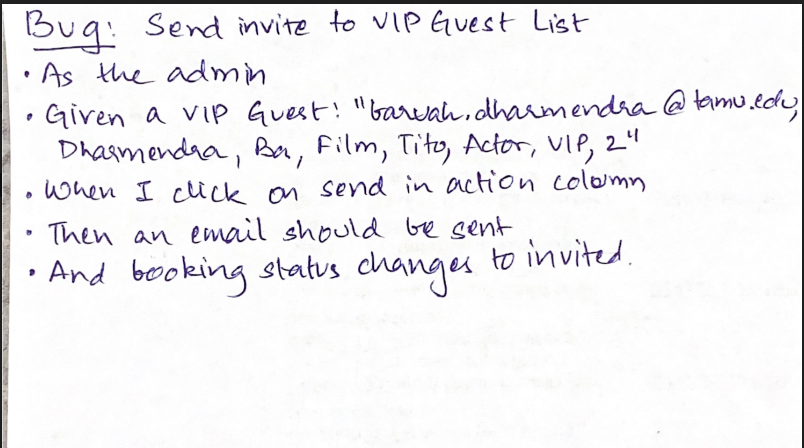 Bug: Send invite to VIP Guest List
• As the admin
• Given a VIP Guest: "baruah.dharmendra@tamu.edu,
Dharmendra, Ba, Film, Tito, Actor, VIP, 2"
• When I click on send in action column
• Then an email should be sent
• And booking status changes to invited.